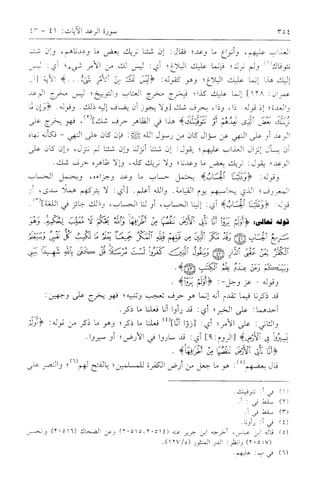 ٣٥٤ سورة الرعد الآيات: ٤١ - ٤٣
العذاب عليهم، وأنواع ما وعد؛ فقال: إن شئنا نريك بعض ما وعدناهم، وإن شئنا
نتوفاك ولم نرك؛ فإنما عليك البلاغ؛ أي: ليس لك من الأمر شيء؛ أي: ليس
إليك هذا إنما عليك البلاغ؛ وهو كقوله: ﴿لَيْسَ لَكَ مِنَ ٱلْأَمْرِ شَىْءٌ ...﴾ الآية [آل
عمران: ١٢٨] إنما عليك كذا؛ فيخرج مخرج العتاب والتوبيخ؛ ليس مخرج الوعد
والعدة؛ إذ قوله: ذا، وذا، بحرف شك [ولا يجوز أن يضاف إليه ذلك. وقوله: ﴿وَإِن مَّا
نُرِيَنَّكَ بَعْضَ ٱلَّذِى نَعِدُهُمْ أَوْ نَتَوَفَّيَنَّكَ﴾ هذا في الظاهر حرف شك]، فهو يخرج على
الوعد أو على النهي عن سؤال كان من رسول الله ﷺ؛ فإن كان على النهي - فكأنه نهاه
أن يسأل إنزال العذاب عليهم؛ يقول: إن شئنا أنزلنا وإن شئنا لم ننزل، وإن كان على
الوعد؛ يقول: نريك بعض ما وعدنا؛ ولا نريك كله، وإلا ظاهره حرف شك.
وقوله: ﴿وَعَلَيْنَا ٱلْحِسَابُ﴾ يحتمل حساب ما وعد وجزاءه، ويحتمل الحساب
المعروف؛ الذي يحاسبهم يوم القيامة. والله أعلم. [أي: لا يتركهم هملًا سدى، أو
قوله: ﴿وَعَلَيْنَا ٱلْحِسَابُ﴾ أي: إلينا الحساب، أو لنا الحساب، وذلك جائز في اللغة]
قوله تعالى: ﴿أَوَلَمْ يَرَوْا۟ أَنَّا نَأْتِى ٱلْأَرْضَ نَنقُصُهَا مِنْ أَطْرَافِهَا وَٱللَّهُ يَحْكُمُ لَا مُعَقِّبَ لِحُكْمِهِۦ وَهُوَ
سَرِيعُ ٱلْحِسَابِ وَقَدْ مَكَرَ ٱلَّذِينَ مِن قَبْلِهِمْ فَلِلَّهِ ٱلْمَكْرُ جَمِيعًا يَعْلَمُ مَا تَكْسِبُ كُلُّ نَفْسٍ وَسَيَعْلَمُ
ٱلْكُفَّٰرُ لِمَنْ عُقْبَى ٱلدَّارِ وَيَقُولُ ٱلَّذِينَ كَفَرُوا۟ لَسْتَ مُرْسَلًا قُلْ كَفَىٰ بِٱللَّهِ شَهِيدًۢا بَيْنِى
وَبَيْنَكُمْ وَمَنْ عِندَهُۥ عِلْمُ ٱلْكِتَٰبِ﴾.
وقوله - عز وجل -: ﴿أَوَلَمْ يَرَوْا۟﴾.
قد ذكرنا فيما تقدم أنه إنما هو حرف تعجب وتنبيه؛ فهو يخرج على وجهين:
أحدهما: على الخبر؛ أي: قد رأوا أنا فعلنا ما ذكر.
والثاني: على الأمر؛ أي: [رَوْا أنا] فعلنا ما ذكر؛ وهو ما ذكر من قوله: ﴿أَوَلَمْ
يَسِيرُوا۟ فِى ٱلْأَرْضِ﴾ [الروم: ٩] أي: قد ساروا في الأرض؛ أو سيروا.
﴿أَنَّا نَأْتِى ٱلْأَرْضَ نَنقُصُهَا مِنْ أَطْرَافِهَا﴾.
قال بعضهم: هو ما جعل من أرض الكفرة للمسلمين؛ بالفتح لهم؛ والنصر على
(١) في أ: نتوفينك.
(٢) سقط في: أ.
(٣) سقط في أ.
(٤) في أ: رأونا.
(٥) قاله ابن عباس، أخرجه ابن جرير عنه (٢٠٥١٤، ٢٠٥١٥) وعن الضحاك (٢٠٥١٦) والحسن
(٢٠٥١٧) وانظر: الدر المنثور (٤/ ١٢٧).
(٦) في ب: عليهم.